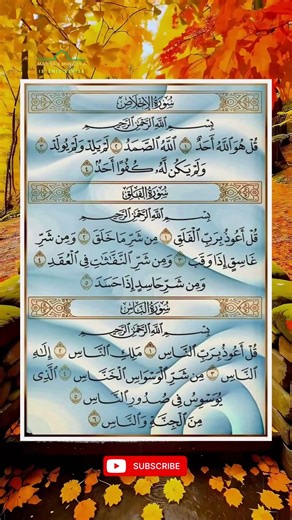 سُورَةُ الإِخْلَاصِ
بِسْمِ اللَّهِ الرَّحْمَٰنِ الرَّحِيمِ
قُلْ هُوَ اللَّهُ أَحَدٌ ١ اللَّهُ الصَّمَدُ ٢ لَمْ يَلِدْ وَلَمْ يُولَدْ ٣
وَلَمْ يَكُن لَّهُ كُفُوًا أَحَدٌ ٤
سُورَةُ الفَلَقِ
بِسْمِ اللَّهِ الرَّحْمَٰنِ الرَّحِيمِ
قُلْ أَعُوذُ بِرَبِّ الْفَلَقِ ١ مِن شَرِّ مَا خَلَقَ ٢ وَمِن شَرِّ
غَاسِقٍ إِذَا وَقَبَ ٣ وَمِن شَرِّ النَّفَّٰثَٰتِ فِي الْعُقَدِ ٤
وَمِن شَرِّ حَاسِدٍ إِذَا حَسَدَ ٥
سُورَةُ النَّاسِ
بِسْمِ اللَّهِ الرَّحْمَٰنِ الرَّحِيمِ
قُلْ أَعُوذُ بِرَبِّ النَّاسِ ١ مَلِكِ النَّاسِ ٢ إِلَٰهِ
النَّاسِ ٣ مِن شَرِّ الْوَسْوَاسِ الْخَنَّاسِ ٤ الَّذِي
يُوَسْوِسُ فِي صُدُورِ النَّاسِ ٥
مِنَ الْجِنَّةِ وَالنَّاسِ ٦
SUBSCRIBE